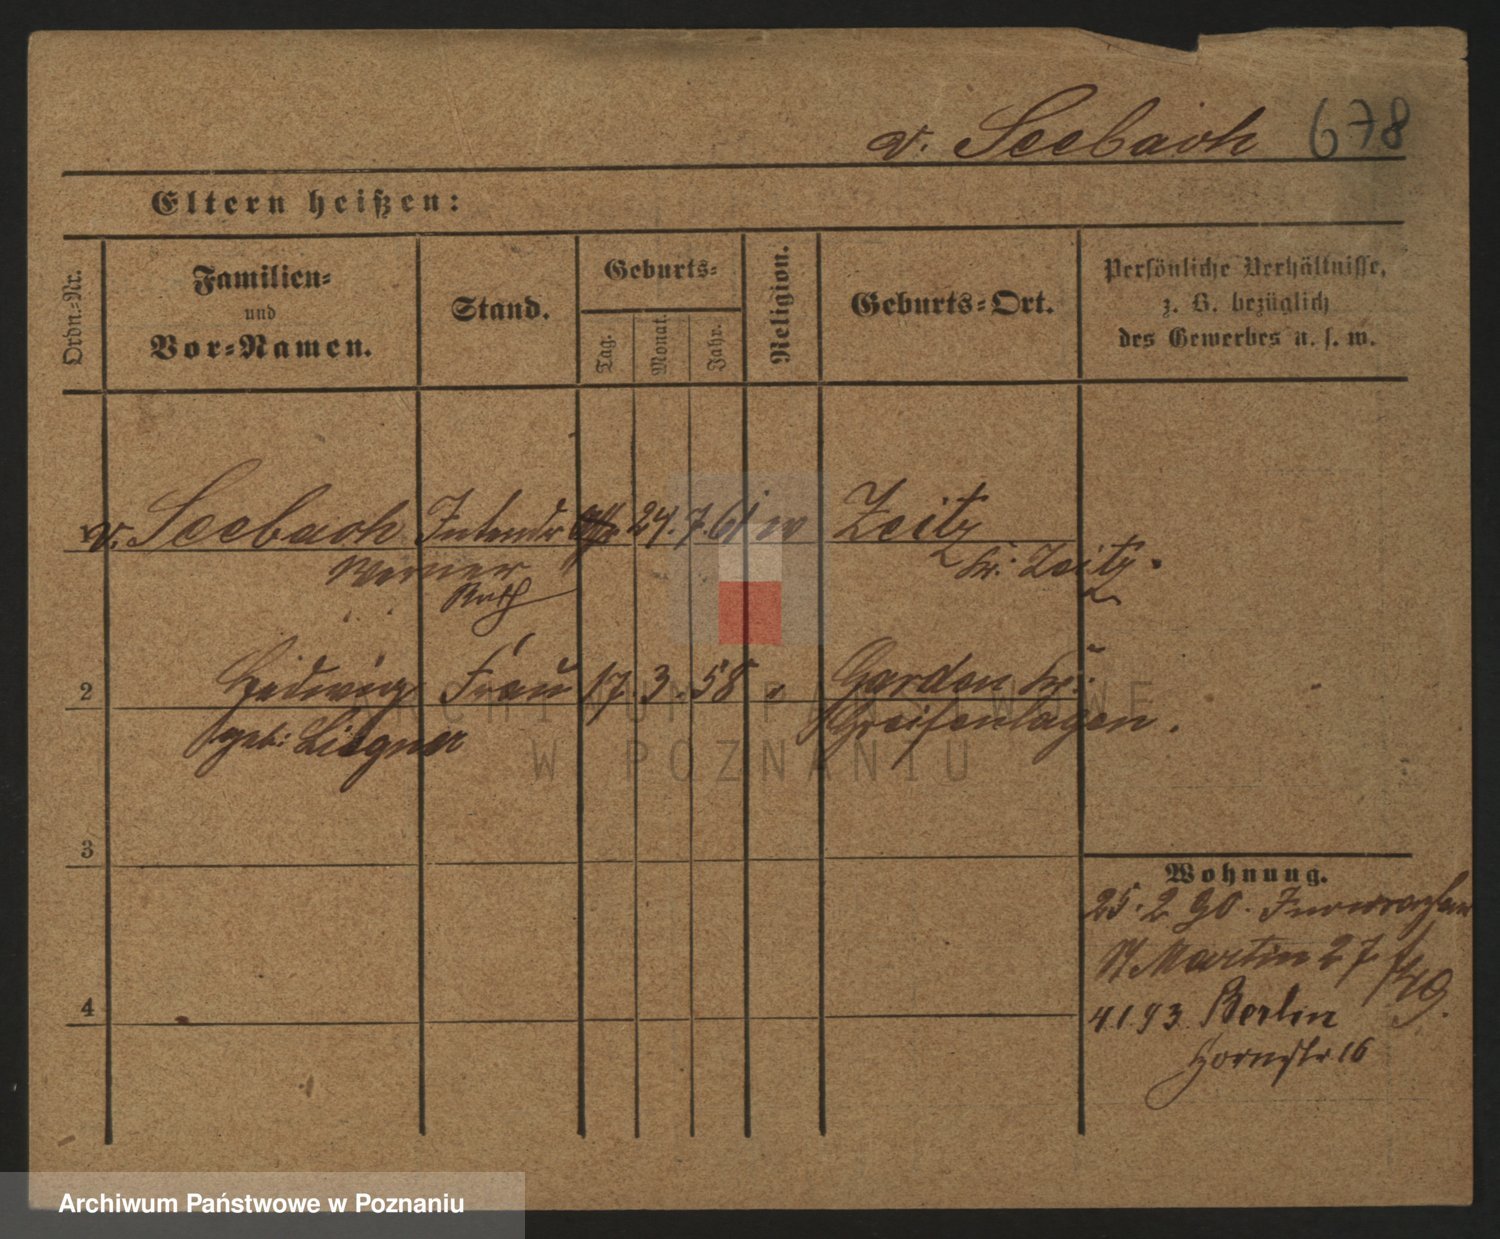 v. Seebach 678
Eltern heißen:
Ordn.-Nr.
Familien-
und
Vor-Namen.
Stand.
Geburts-
Tag.
Monat.
Jahr.
Religion.
Geburts-Ort.
Persönliche Verhältnisse,
z. B. bezüglich
des Gewerbes u. s. w.
v. Seebach Intendtr 24. 7. 61 ev Zeitz
Werner
Rath
Kr. Zeitz.
2 Hedwig Frau 17. 3. 58 " Garden Kr.
geb: Liegner
Greifenhagen.
3
Wohnung.
25. 2 90. Inowrazlaw
St Martin 27
4
4.1.93. Berlin
Hornstr 16
ARCHIWUM PAŃSTWOWE
W POZNANIU
Archiwum Państwowe w Poznaniu